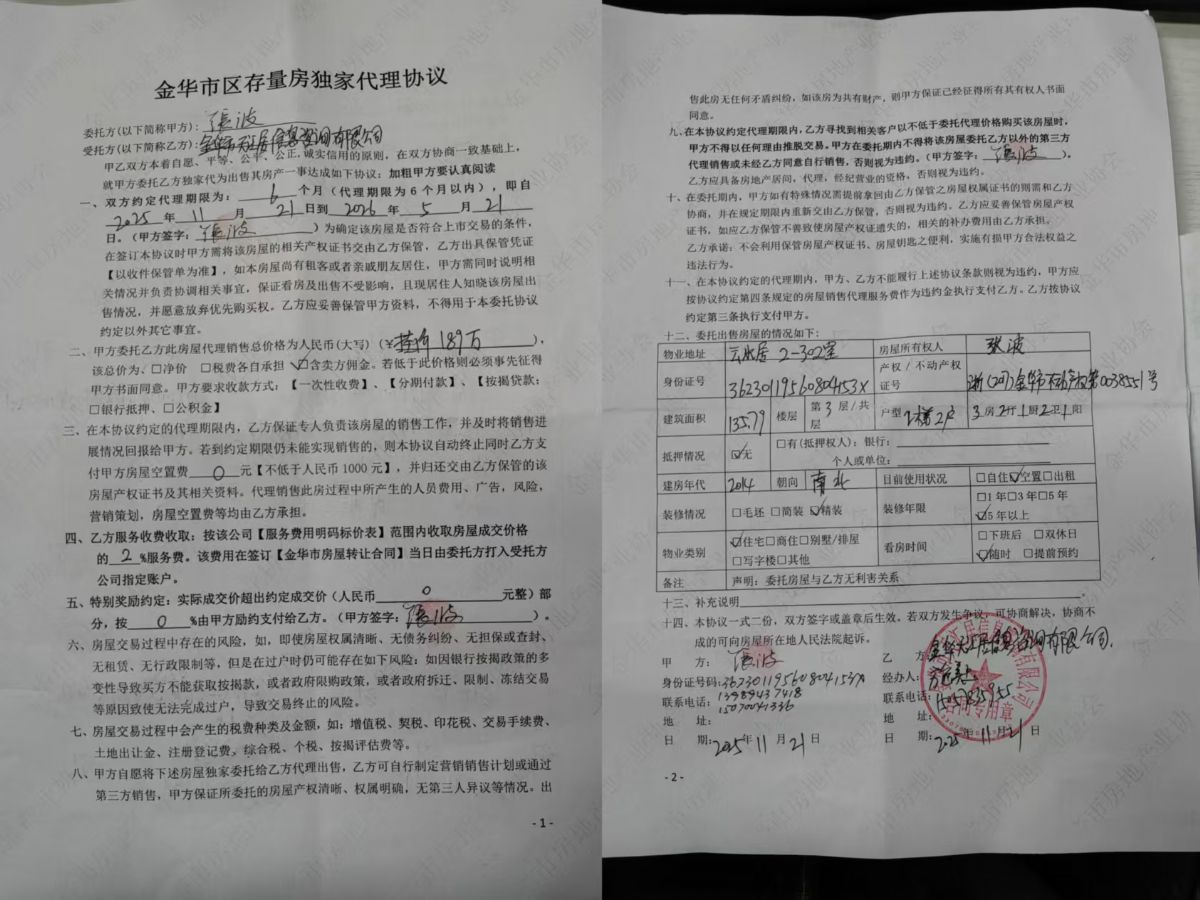 金华市区存量房独家代理协议
委托方(以下简称甲方)：張波
受托方(以下简称乙方)：金华市天江居信息咨询有限公司
甲乙双方本着自愿、平等、公平、公正，诚实信用的原则，在双方协商一致基础上，
就甲方委托乙方独家代为出售其房产一事达成如下协议：加粗甲方要认真阅读
一、双方约定代理期限为：6个月（代理期限为6个月以内），即自
2025年11月21日到2026年5月21
日。（甲方签字：張波）为确定该房屋是否符合上市交易的条件，
在签订本协议时甲方需将该房屋的相关产权证书交由乙方保管，乙方出具保管凭证
【以收件保管单为准】，如本房屋尚有租客或者亲戚朋友居住，甲方需同时说明相
关情况并负责协调相关事宜，保证看房及出售不受影响，且现居住人知晓该房屋出
售情况，并愿意放弃优先购买权。乙方应妥善保管甲方资料，不得用于本委托协议
约定以外其它事宜。
二、甲方委托乙方此房屋代理销售总价格为人民币(大写)（¥挂牌189万），
该总价为、□净价 □税费各自承担 ☑含卖方佣金。若低于此价格则必须事先征得
甲方书面同意。甲方要求收款方式：【一次性收费】、【分期付款】、【按揭贷款：
□银行抵押、□公积金】
三、在本协议约定的代理期限内，乙方保证专人负责该房屋的销售工作，并及时将销售进
展情况回报给甲方。若到约定期限仍未能实现销售的，则本协议自动终止同时乙方支
付甲方房屋空置费0元【不低于人民币1000元】，并归还交由乙方保管的该
房屋产权证书及其相关资料。代理销售此房过程中所产生的人员费用、广告，风险，
营销策划，房屋空置费等均由乙方承担。
四、乙方服务收费收取：按该公司【服务费用明码标价表】范围内收取房屋成交价格
的2%服务费。该费用在签订【金华市房屋转让合同】当日由委托方打入受托方
公司指定账户。
五、特别奖励约定：实际成交价超出约定成交价（人民币0元整）部
分，按0%由甲方励约支付给乙方。（甲方签字：張波）。
六、房屋交易过程中存在的风险，如，即使房屋权属清晰、无债务纠纷、无担保或查封、
无租赁、无行政限制等，但是在过户时仍可能存在如下风险：如因银行按揭政策的多
变性导致买方不能获取按揭款，或者政府限购政策，或者政府拆迁、限制、冻结交易
等原因致使无法完成过户，导致交易终止的风险。
七、房屋交易过程中会产生的税费种类及金额，如：增值税、契税、印花税、交易手续费、
土地出让金、注册登记费，综合税、个税、按揭评估费等。
八、甲方自愿将下述房屋独家委托给乙方代理出售，乙方可自行制定营销销售计划或通过
第三方销售，甲方保证所委托的房屋产权清晰、权属明确，无第三人异议等情况。出
- 1 -
售此房无任何矛盾纠纷，如该房为共有财产，则甲方保证已经征得所有其有权人书面
同意。
九、在本协议约定代理期限内，乙方寻找到相关客户以不低于委托代理价格购买该房屋时，
甲方不得以任何理由推脱交易。甲方在委托期内不得将该房屋委托乙方以外的第三方
代理销售或未经乙方同意自行销售，否则视为违约。（甲方签字：張波）。
乙方应具备房地产居间，代理，经纪营业的资格，否则视为违约。
十、在委托期内，甲方如有特殊情况需提前拿回由乙方保管之房屋权属证书的则需和乙方
协商，并在规定期限内重新交由乙方保管，否则视为违约。乙方应妥善保管房屋产权
证书，如应乙方保管不善致使房产权证遗失的，相关的补办费用由乙方承担。
乙方承诺：不会利用保管房屋产权证书、房屋钥匙之便利，实施有损甲方合法权益之
违法行为。
十一、在本协议约定的代理期内，甲方、乙方不能履行上述协议条款则视为违约，甲方应
按协议约定第四条规定的房屋销售代理服务费作为违约金执行支付乙方。乙方按协议
约定第三条执行支付甲方。
十二、委托出售房屋的情况如下：
物业地址 云水居 2-302室 房屋所有权人 张波
身份证号 36230119560804153X 产权／不动产权证号 浙(2017)金华市不动产权第0038551号
建筑面积 135.79 楼层 第3层/共 层 户型 2梯2户 3房2厅1厨2卫1阳
抵押情况 ☑无 □有(抵押权人)：银行：
个人或单位：
建房年代 2014 朝向 南北 目前使用状况 □自住☑空置□出租
装修情况 □毛坯 □简装 ☑精装 装修年限 □1年□3年□5年
☑5年以上
物业类别 ☑住宅□商住□别墅/排屋 看房时间 □下班后 □双休日
□写字楼□其他 ☑随时 □提前预约
备注 声明：委托房屋与乙方无利害关系
十三、补充说明
十四、本协议一式二份，双方签字或盖章后生效，若双方发生争议，可协商解决，协商不
成的可向房屋所在地人民法院起诉。
甲 方：張波 乙 方：金华天江居信息咨询有限公司.
身份证号码：36230119560804153X 经办人：
联系电话：13989437418 联系电话：
15070041336
地 址： 地 址：
日 期：2025年11月21日 日 期：2025年11月21日
合同专用章
- 2 -